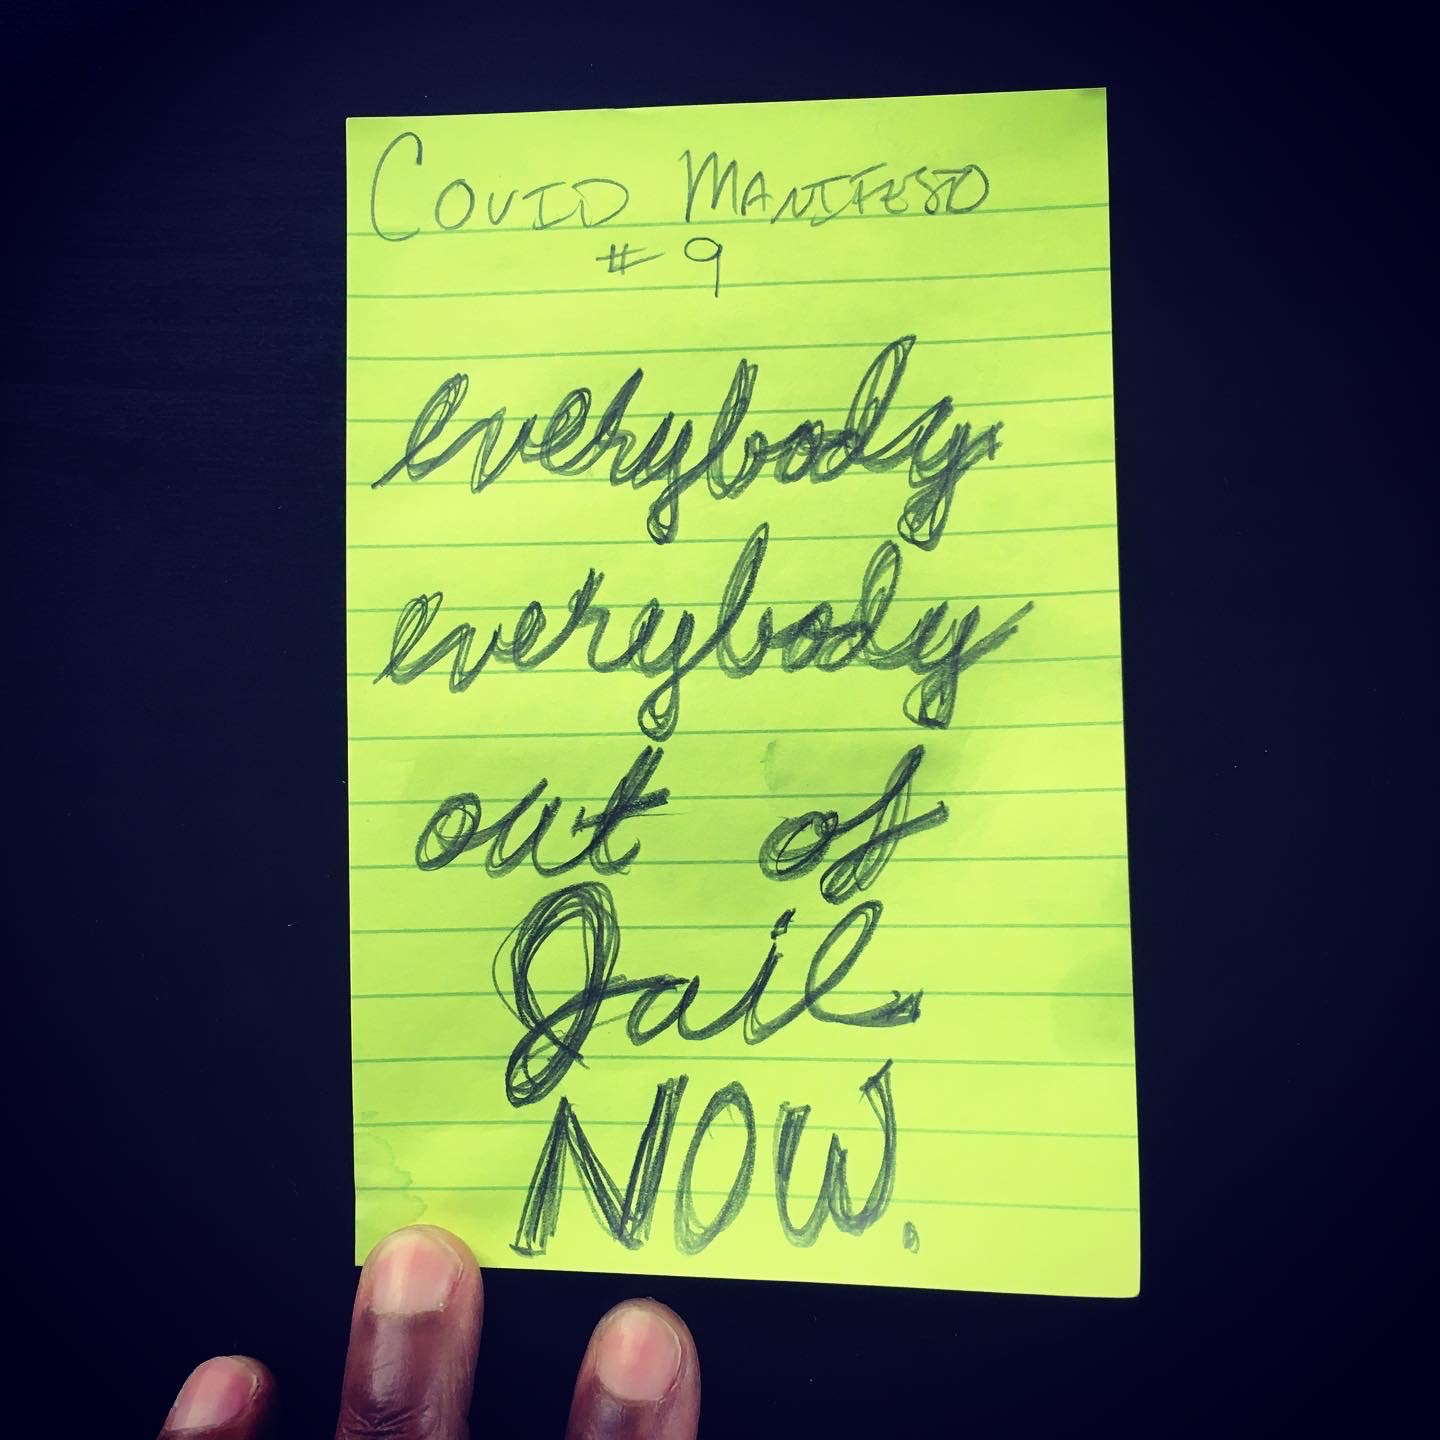 COVID MANIFESTO
#9
everybody
everybody
out of
Jail
NOW.